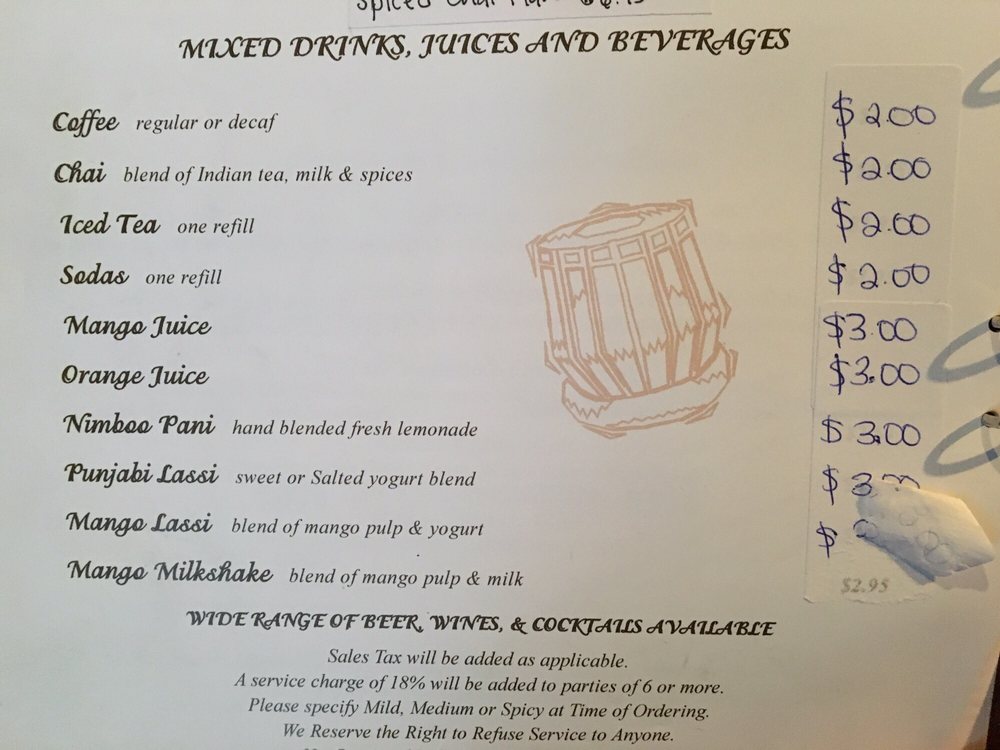 Spiced Chai
MIXED DRINKS, JUICES AND BEVERAGES
Coffee regular or decaf $2.00
Chai blend of Indian tea, milk & spices $2.00
Iced Tea one refill $2.00
Sodas one refill $2.00
Mango Juice $3.00
Orange Juice $3.00
Nimboo Pani hand blended fresh lemonade $3.00
Punjabi Lassi sweet or Salted yogurt blend $3
Mango Lassi blend of mango pulp & yogurt $
Mango Milkshake blend of mango pulp & milk $2.95
WIDE RANGE OF BEER, WINES, & COCKTAILS AVAILABLE
Sales Tax will be added as applicable.
A service charge of 18% will be added to parties of 6 or more.
Please specify Mild, Medium or Spicy at Time of Ordering.
We Reserve the Right to Refuse Service to Anyone.